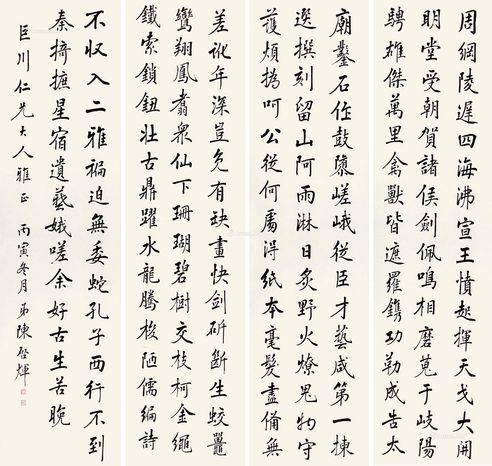 周綱陵遲四海沸宣王憤起揮天戈大開
明堂受朝賀諸侯劍佩鳴相磨蒐于岐陽
騁雄傑萬里禽獸皆遮羅鐫功勒成告太
廟鑿石作鼓隳嵯峨從臣才藝咸第一揀
選撰刻留山阿雨淋日炙野火燎鬼物守
護煩撝呵公從何處淂紙本毫髮盡備無
差訛年深豈免有缺畫快劍斫斷生蛟鼉
鸞翔鳳翥衆仙下珊瑚碧樹交枝柯金繩
鐵索鎖鈕壯古鼎躍水龍騰梭陋儒編詩
不收入二雅褊迫無委蛇孔子西行不到
秦掎摭星宿遺羲娥嗟余好古生苦晚
巨川仁兄大人雅正 丙寅冬月 弟陳啓煇